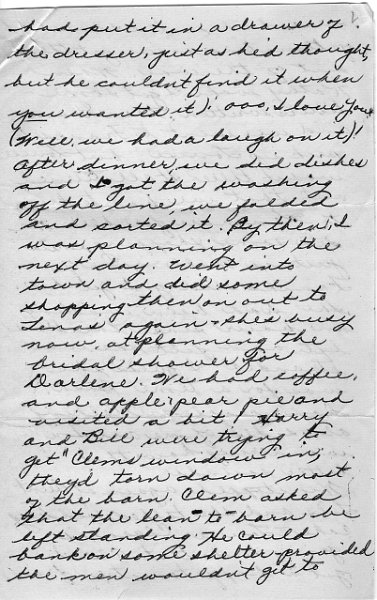 had put it in a drawer of
the dresser, just as he'd thought,
but he couldn't find it when
you wanted it); ooo, I love you.
(Well, we had a laugh on it)!
After dinner, we did dishes
and I got the washing
off the line, we folded
and sorted it. By then, I
was planning on the
next day. Went into
town and did some
shopping then on out to
Lenas' again - she's busy
now, at planning the
bridal shower for
Darlene. We had coffee,
and apple-pear pie and
visited a bit! Harry
and Bill were trying to
get "Clems window" in,
they'd torn down most
of the barn. Clem asked
that the lean-to-barn be
left standing. He could
bank on some shelter provided
the men wouldn't get to